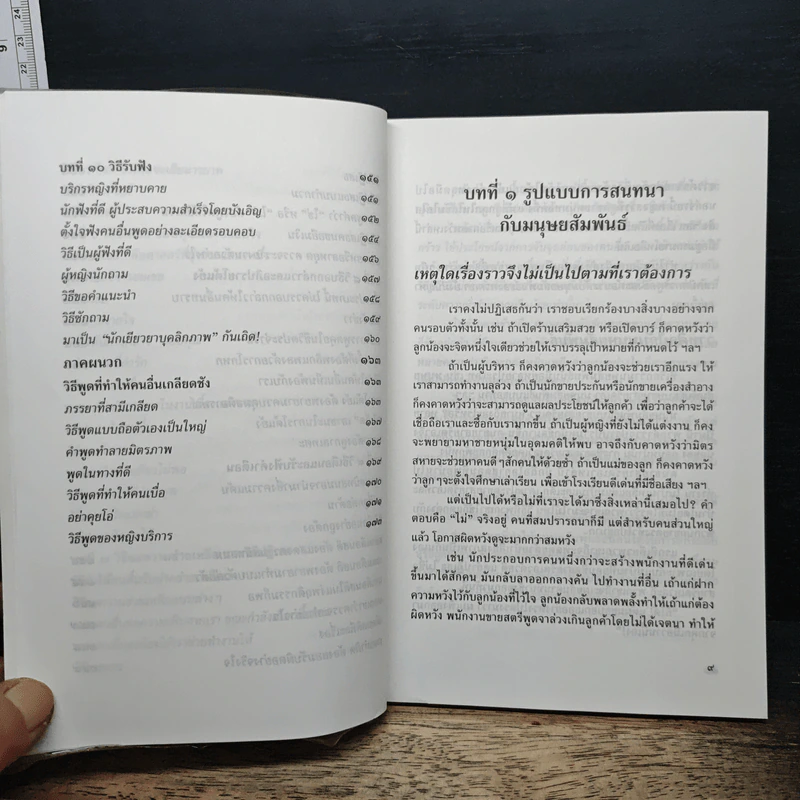 บทที่ ๑๐ วิธีรับฟัง ๑๕๑
บริกรหญิงที่หยาบคาย ๑๕๑
นักฟังที่ดี ผู้ประสบความสำเร็จโดยบังเอิญ ๑๕๒
ตั้งใจฟังคนอื่นพูดอย่างละเอียดรอบคอบ ๑๕๔
วิธีเป็นผู้ฟังที่ดี ๑๕๕
ผู้หญิงนักถาม ๑๕๗
วิธีขอคำแนะนำ ๑๕๘
วิธีซักถาม ๑๕๙
มาเป็น “นักเยียวยาบุคลิกภาพ” กันเถิด! ๑๖๐
ภาคผนวก ๑๖๓
วิธีพูดที่ทำให้คนอื่นเกลียดชัง ๑๖๓
ภรรยาที่สามีเกลียด ๑๖๓
วิธีพูดแบบถือตัวเองเป็นใหญ่ ๑๖๗
คำพูดทำลายมิตรภาพ ๑๖๘
พูดในทางที่ดี ๑๖๙
วิธีพูดที่ทำให้คนเบื่อ ๑๗๐
อย่าคุยโอ่ ๑๗๑
วิธีพูดของหญิงบริการ ๑๗๓
บทที่ ๑ รูปแบบการสนทนา
กับมนุษยสัมพันธ์
เหตุใดเรื่องราวจึงไม่เป็นไปตามที่เราต้องการ
เราคงไม่ปฏิเสธกันว่า เราชอบเรียกร้องบางสิ่งบางอย่างจาก
คนรอบตัวทั้งนั้น เช่น ถ้าเปิดร้านเสริมสวย หรือเปิดบาร์ ก็คาดหวังว่า
ลูกน้องจะจิตหนึ่งใจเดียวช่วยให้เราบรรลุเป้าหมายที่กำหนดไว้ ฯลฯ
ถ้าเป็นผู้บริหาร ก็คงคาดหวังว่าลูกน้องจะช่วยเราอีกแรง ให้
เราสามารถทำงานลุล่วง ถ้าเป็นนักขายประกันหรือนักขายเครื่องสำอาง
ก็คงคาดหวังว่าจะสามารถดูแลผลประโยชน์ให้ลูกค้า เพื่อว่าลูกค้าจะได้
เชื่อถือเราและซื้อกับเรามากขึ้น ถ้าเป็นผู้หญิงที่ยังไม่ได้แต่งงาน ก็คง
จะพยายามหาชายหนุ่มในอุดมคติให้พบ อาจถึงกับคาดหวังว่ามิตร
สหายจะช่วยหาคนดีๆสักคนให้ด้วยซ้ำ ถ้าเป็นแม่ของลูก ก็คงคาดหวัง
ว่าลูกๆจะตั้งใจศึกษาเล่าเรียน เพื่อเข้าโรงเรียนดีเด่นที่มีชื่อเสียง ฯลฯ
แต่เป็นไปได้หรือไม่ที่เราจะได้มาซึ่งสิ่งเหล่านี้เสมอไป? คำ
ตอบคือ “ไม่” จริงอยู่ คนที่สมปรารถนาก็มี แต่สำหรับคนส่วนใหญ่
แล้ว โอกาสผิดหวังดูจะมากกว่าสมหวัง
เช่น นักประกอบการคนหนึ่งกว่าจะสร้างพนักงานที่ดีเด่น
ขึ้นมาได้สักคน มันกลับลาออกกลางคัน ไปทำงานที่อื่น เถ้าแก่ฝาก
ความหวังไว้กับลูกน้องที่ไว้ใจ ลูกน้องกลับพลาดพลั้งทำให้เถ้าแก่ต้อง
ผิดหวัง พนักงานขายสตรีพูดจาล่วงเกินลูกค้าโดยไม่ได้เจตนา ทำให้
๙
22
23
24
9